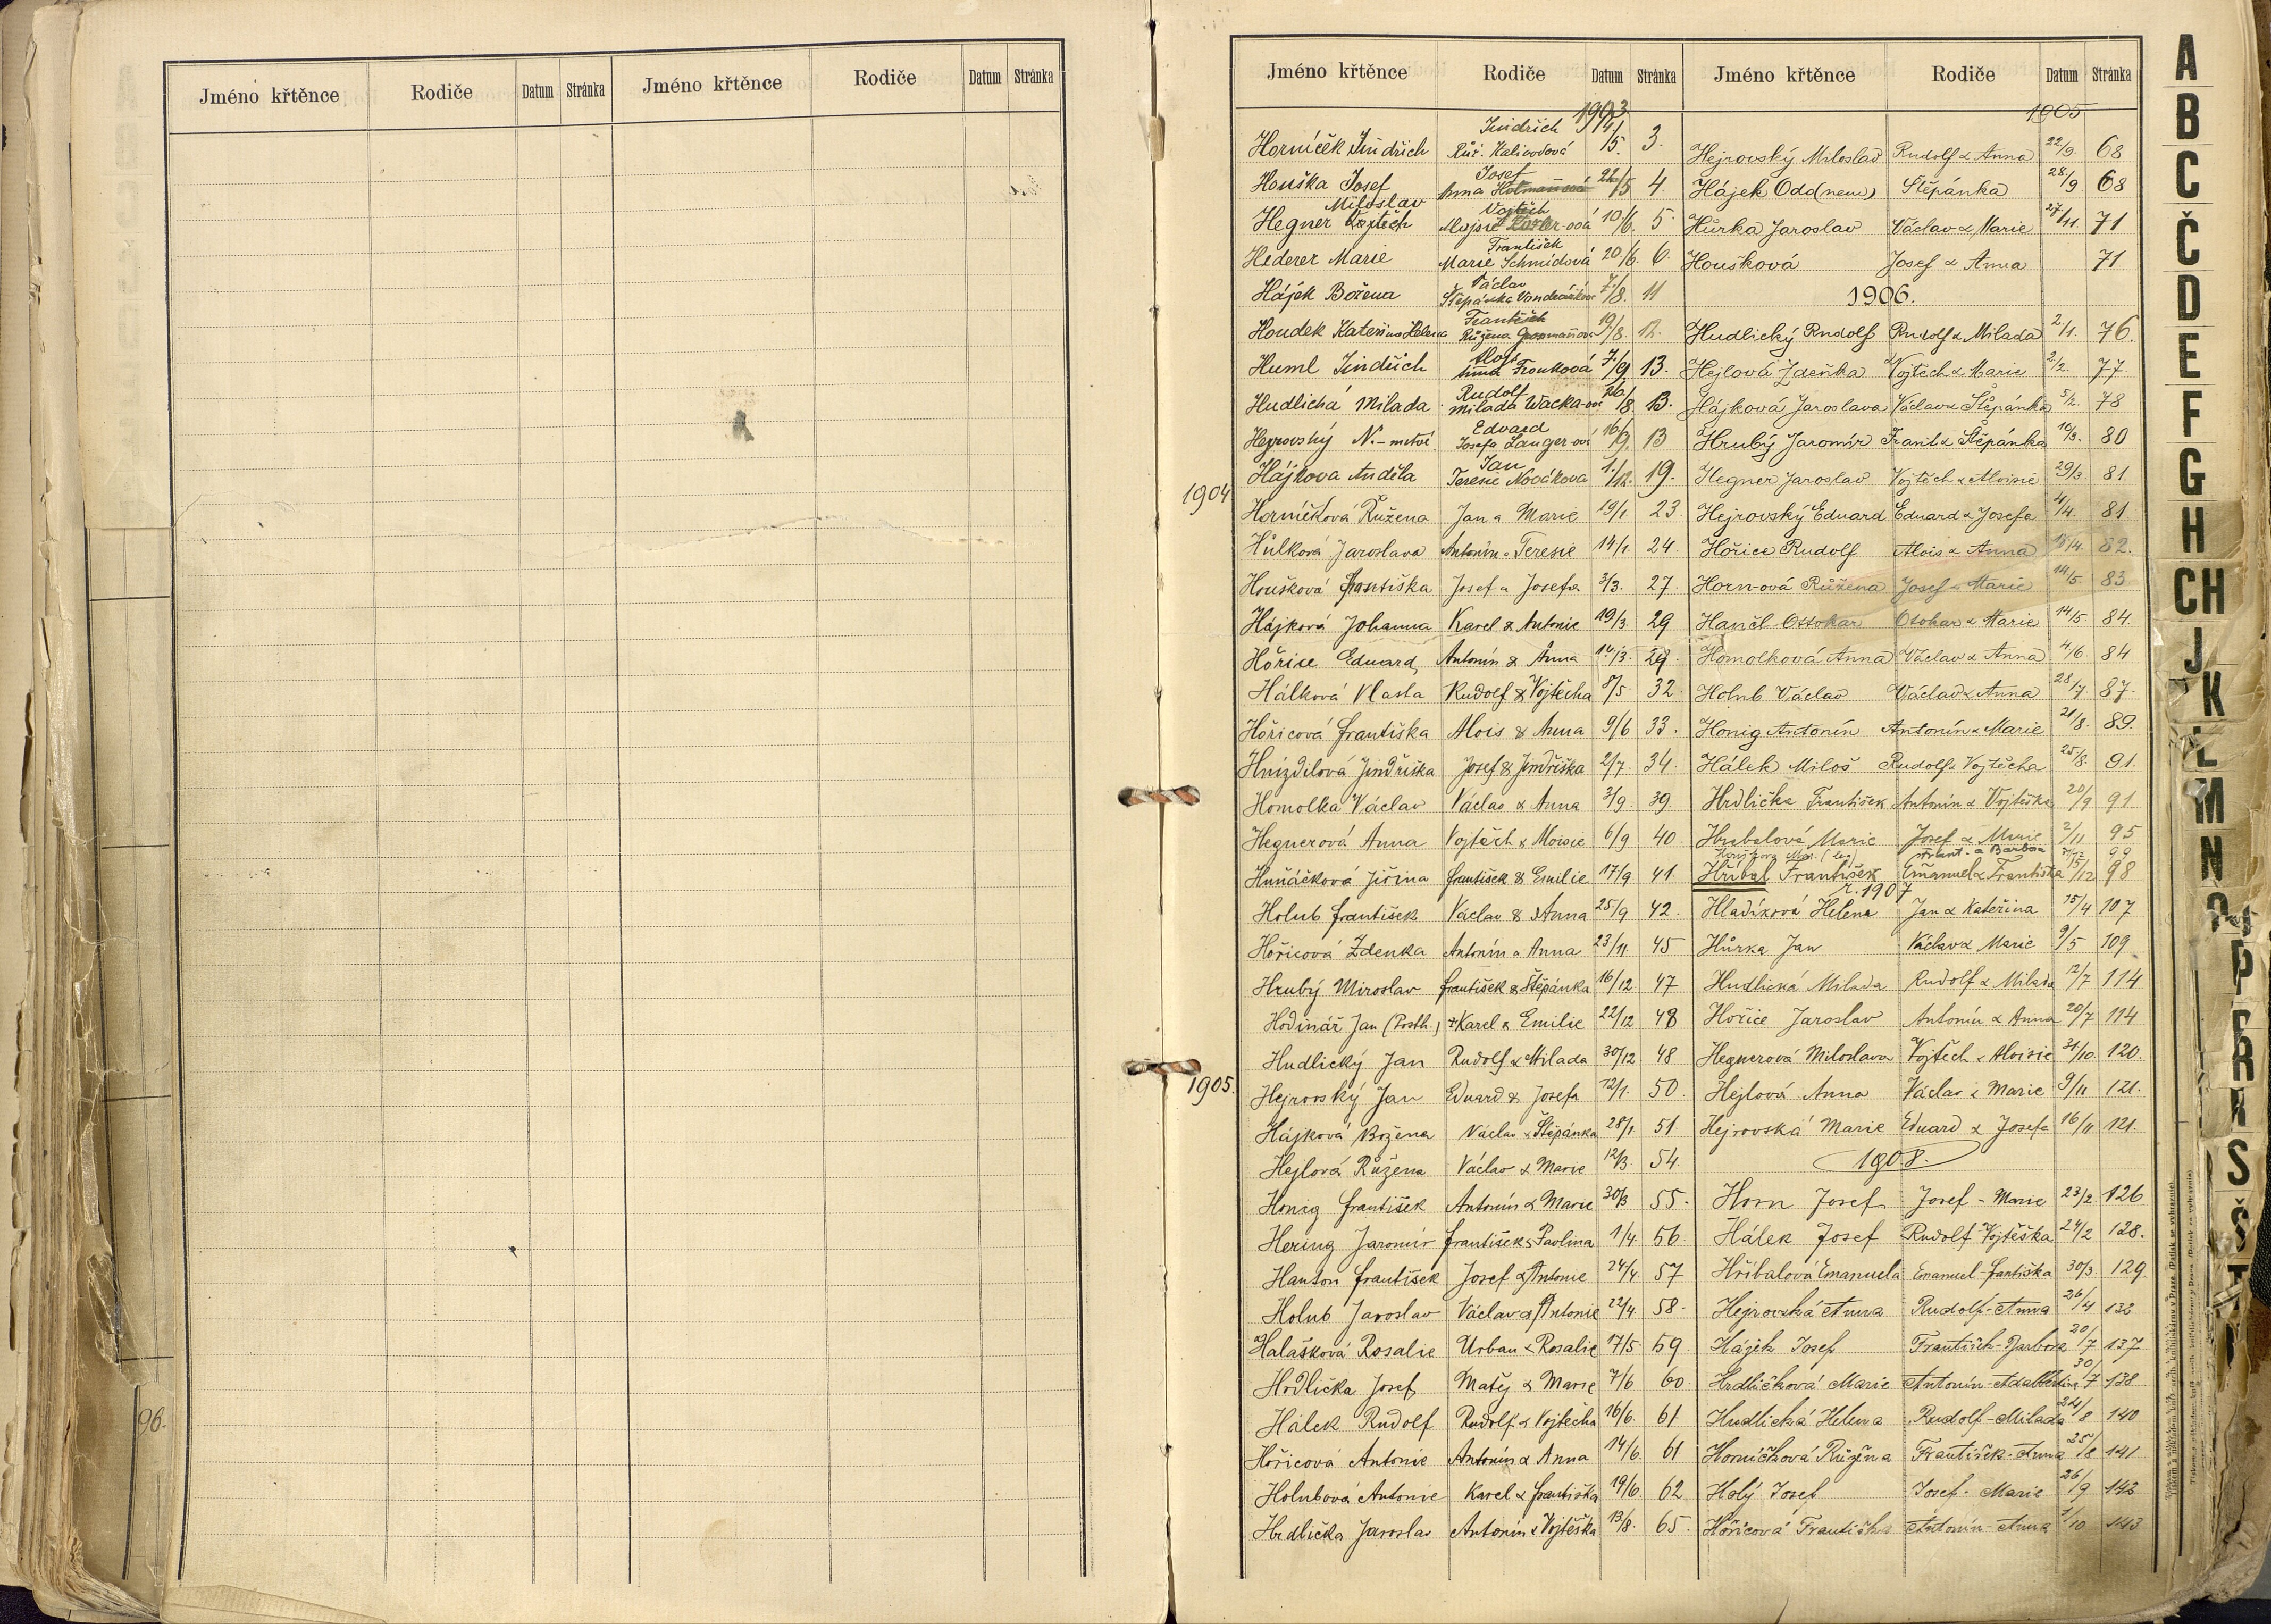 Jméno křtěnce Rodiče Datum Stránka Jméno křtěnce Rodiče Datum Stránka
96.
Jméno křtěnce Rodiče Datum Stránka
1903
Horníček Jindřich Jindřich Růž. Kalivodová 14/5. 3.
Houška Josef Josef Anna 22/5 4.
Hegner Vojtěch Miloslav Vojtěch Aloisie 10/6. 5.
Hederer Marie František Marie Schmidová 20/6. 6.
Hájek Božena Václav Štěpánka 7/8. 11
Houdek Kateřina Helena František Růžena Grossmannová 19/8. 12.
Huml Jindřich Alois Anna Froňková 7/9 13.
Hudlická Milada Rudolf Milada Wacka-ová 26/8. 13.
Hejrovský N.-mrtvé Edvard Josefa Langer-ová 16/9. 13
Hájkova Anděla Jan Teresie Nováková 1./12. 19.
1904
Horníčková Růžena Jan a Marie 19/1. 23
Hůlková Jaroslava Antonín a Teresie 14/1. 24.
Houšková Františka Josef a Josefa 3/3. 27.
Hájková Johanna Karel & Antonie 19/3. 29
Hořice Eduard Antonín & Anna /3. 29.
Hálková Vlasta Rudolf & Vojtěcha 8/5. 32.
Hořicová Františka Alois & Anna 9/6 33.
Hnízdilová Jindřiška Josef & Jindřiška 2/7. 34.
Homolka Václav Václav & Anna 3/9. 39.
Hegnerová Anna Vojtěch & Aloisie 6/9 40
Huňáčková Jiřina František & Emilie 17/9 41
Holub František Václav & Anna 25/9 42.
Hořicová Zdenka Antonín a Anna 23/11 45
Hrubý Miroslav František & Štěpánka 16/12 47
Hodinář Jan (Posth.) +Karel & Emilie 22/12 48
Hudlický Jan Rudolf & Milada 30/12 48
1905.
Hejrovský Jan Eduard & Josefa 12/1. 50.
Hájková Božena Václav & Štěpánka 28/1 51.
Hejlová Růžena Václav & Marie 12/3. 54.
Honig František Antonín & Marie 30/3 55.
Hering Jaromír František & Pavlina 1/4. 56.
Hanton František Josef & Antonie 24/4. 57
Holub Jaroslav Václav & Antonie 22/4. 58.
Halašková Rosalie Urban & Rosalie 17/5. 59
Hrdlička Josef Matěj & Marie 7/6 60
Hálek Rudolf Rudolf & Vojtěcha 16/6. 61
Hořicová Antonie Antonín & Anna 14/6. 61
Holubová Antonie Karel & Františka 19/6. 62
Hrdlička Jaroslav Antonín & Vojtěška 13/8. 65.
Jméno křtěnce Rodiče Datum Stránka
1905
Hejrovský Miloslav Rudolf & Anna 22/9. 68
Hájek Odd(nem) Štěpánka 28/9 68
Hůrka Jaroslav Václav & Marie 27/11. 71
Houšková Josef & Anna 71
1906.
Hudlický Rudolf Rudolf & Milada 2/1. 76.
Hejlová Zdeňka Vojtěch & Marie 2/2. 77
Hájková Jaroslava Václav & Štěpánka 5/2. 78
Hrubý Jaromír Frant & Štěpánka 10/3. 80
Hegner Jaroslav Vojtěch & Aloisie 29/3. 81
Hejrovský Eduard Eduard & Josefa 4/4. 81
Hořice Rudolf Alois & Anna 15/4. 82.
Horn-ová Růžena Josef & Marie 14/5 83
Hančl Ottokar Otokar & Marie 14/5. 84.
Homolková Anna Václav & Anna 4/6 84
Holub Václav Václav & Anna 28/7. 87.
Honig Antonín Antonín & Marie 21/8. 89.
Hálek Miloš Rudolf & Vojtěcha 25/8. 91.
Hrdlička František Antonín & Vojtěška 20/9 91
Hrubalová Marie Josef & Marie 2/11 95
Frant. a Barbora 99
Hřibal František Emanuel & Františka 5/12 98
r. 1907
Hladíková Helena Jan & Kateřina 15/4 107
Hůrka Jan Václav & Marie 9/5 109
Hudlická Milada Rudolf & Milada 12/7 114
Hořice Jaroslav Antonín & Anna 20/7 114
Hegnerová Miloslava Vojtěch & Aloisie 31/10. 120.
Hejlová Anna Václav & Marie 9/11 121.
Hejrovská Marie Eduard & Josefa 16/11 121.
1908.
Horn Josef Josef - Marie 23/2. 126
Hálek Josef Rudolf Vojtěška 24/2 128.
Hřibalová Emanuela Emanuel Fantiška 30/3. 129
Hejrovská Anna Rudolf - Anna 26/4 132
Hájek Josef František - Barbora 20/7 137
Hrdličková Marie Antonín - Adalbertina 30/7 138
Hudlická Helena Rudolf - Milada 24/8 140
Horníčková Růžena František - Anna 25/8 141
Holý Josef Josef - Marie 26/9 142
Hořicová Františka Antonín - Anna 1/10 143
A
B
C
Č
D
E
F
G
H
CH
J
K
L
M
N
O
P
R
Ř
S
Š
T